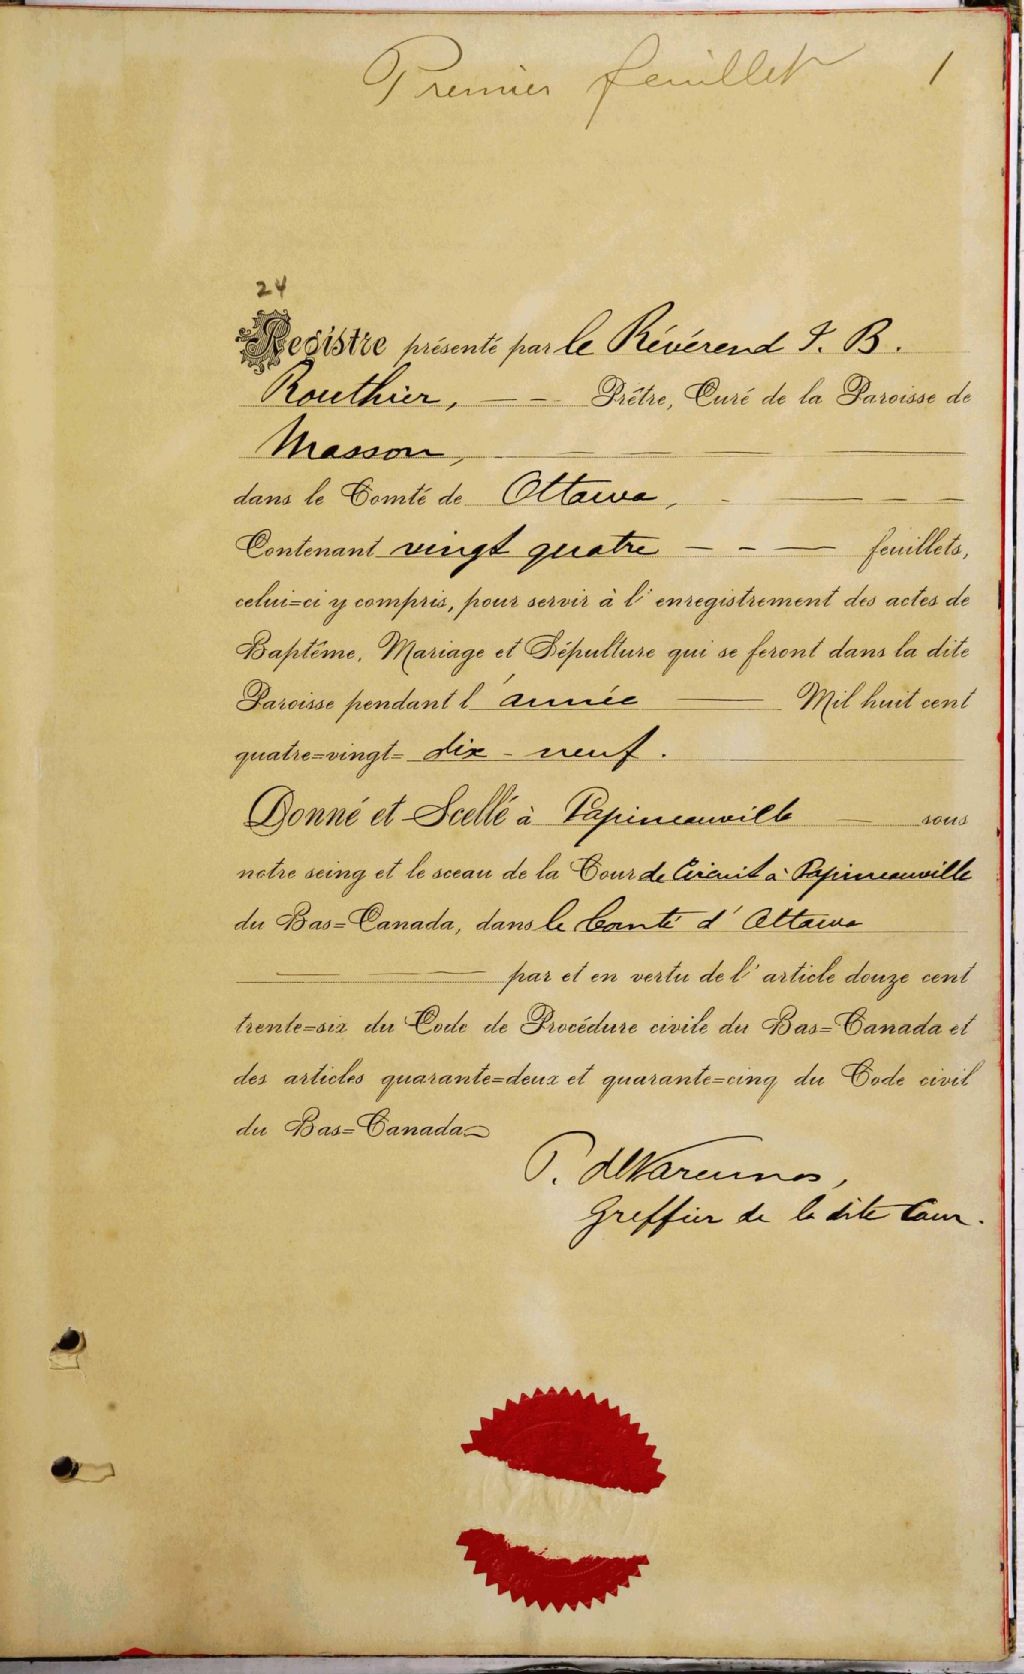 Premier feuillet 1
24
Registre présenté par le Révérend J. B.
Routhier, — — Prêtre, Curé de la Paroisse de
Masson,
dans le Comté de Ottawa,
Contenant vingt quatre — - — feuillets,
celui=ci y compris, pour servir à l'enregistrement des actes de
Baptême, Mariage et Sépulture qui se feront dans la dite
Paroisse pendant l'année — Mil huit cent
quatre=vingt= dix-neuf.
Donné et Scellé à Papineauville — sous
notre seing et le sceau de la Cour de Circuit à Papineauville
du Bas=Canada, dans le Comté d'Ottawa
par et en vertu de l'article douze cent
trente=six du Code de Procédure civile du Bas=Canada et
des articles quarante=deux et quarante=cinq du Code civil
du Bas=Canada
P. deVarennes,
Greffier de la dite Cour.